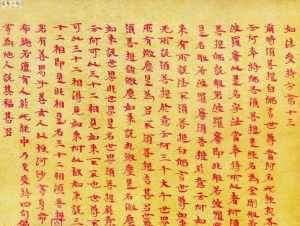 如法受持分第十三
爾時須菩提白佛言世尊當何名此經我等
云何奉持佛告須菩提是經名為金剛般若
波羅蜜以是名字汝當奉持所以者何須
菩提佛說般若波羅蜜即非般若波羅蜜
是名般若波羅蜜須菩提於意云何如
來有所說法不須菩提白佛言世尊如來
無所說須菩提於意云何三千大千世界
所有微塵是為多不須菩提言甚多世尊
須菩提諸微塵如來說非微塵是名微塵
如來說世界非世界是名世界須菩提於意
云何可以三十二相見如來不不也世尊不
可以三十二相得見如來何以故如來說三
十二相即是非相是名三十二相須菩提
若有善男子善女人以恒河沙等身命
布施若復有人於此經中乃至受持四句偈
等為他人說其福甚多